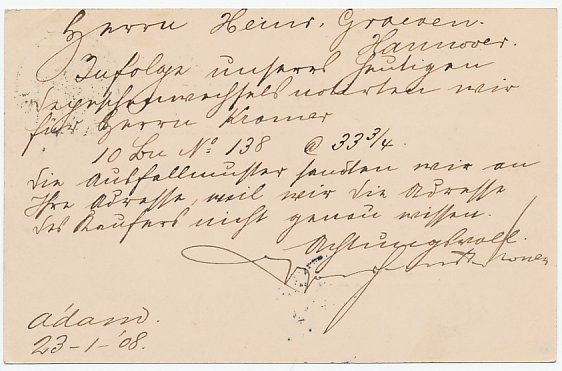 Herrn Heinr. Graeven.
Hannover.
Infolge unseres heutigen
Depeschenwechsels notirten wir
für Herrn Kramer
10 Bn No. 138 @ 33 3/4.
Die Ausfallmuster sandten wir an
Ihre Adresse, weil wir die Adresse
des Käufers nicht genau wissen.
Achtungsvoll
A'dam.
23-1-'08.